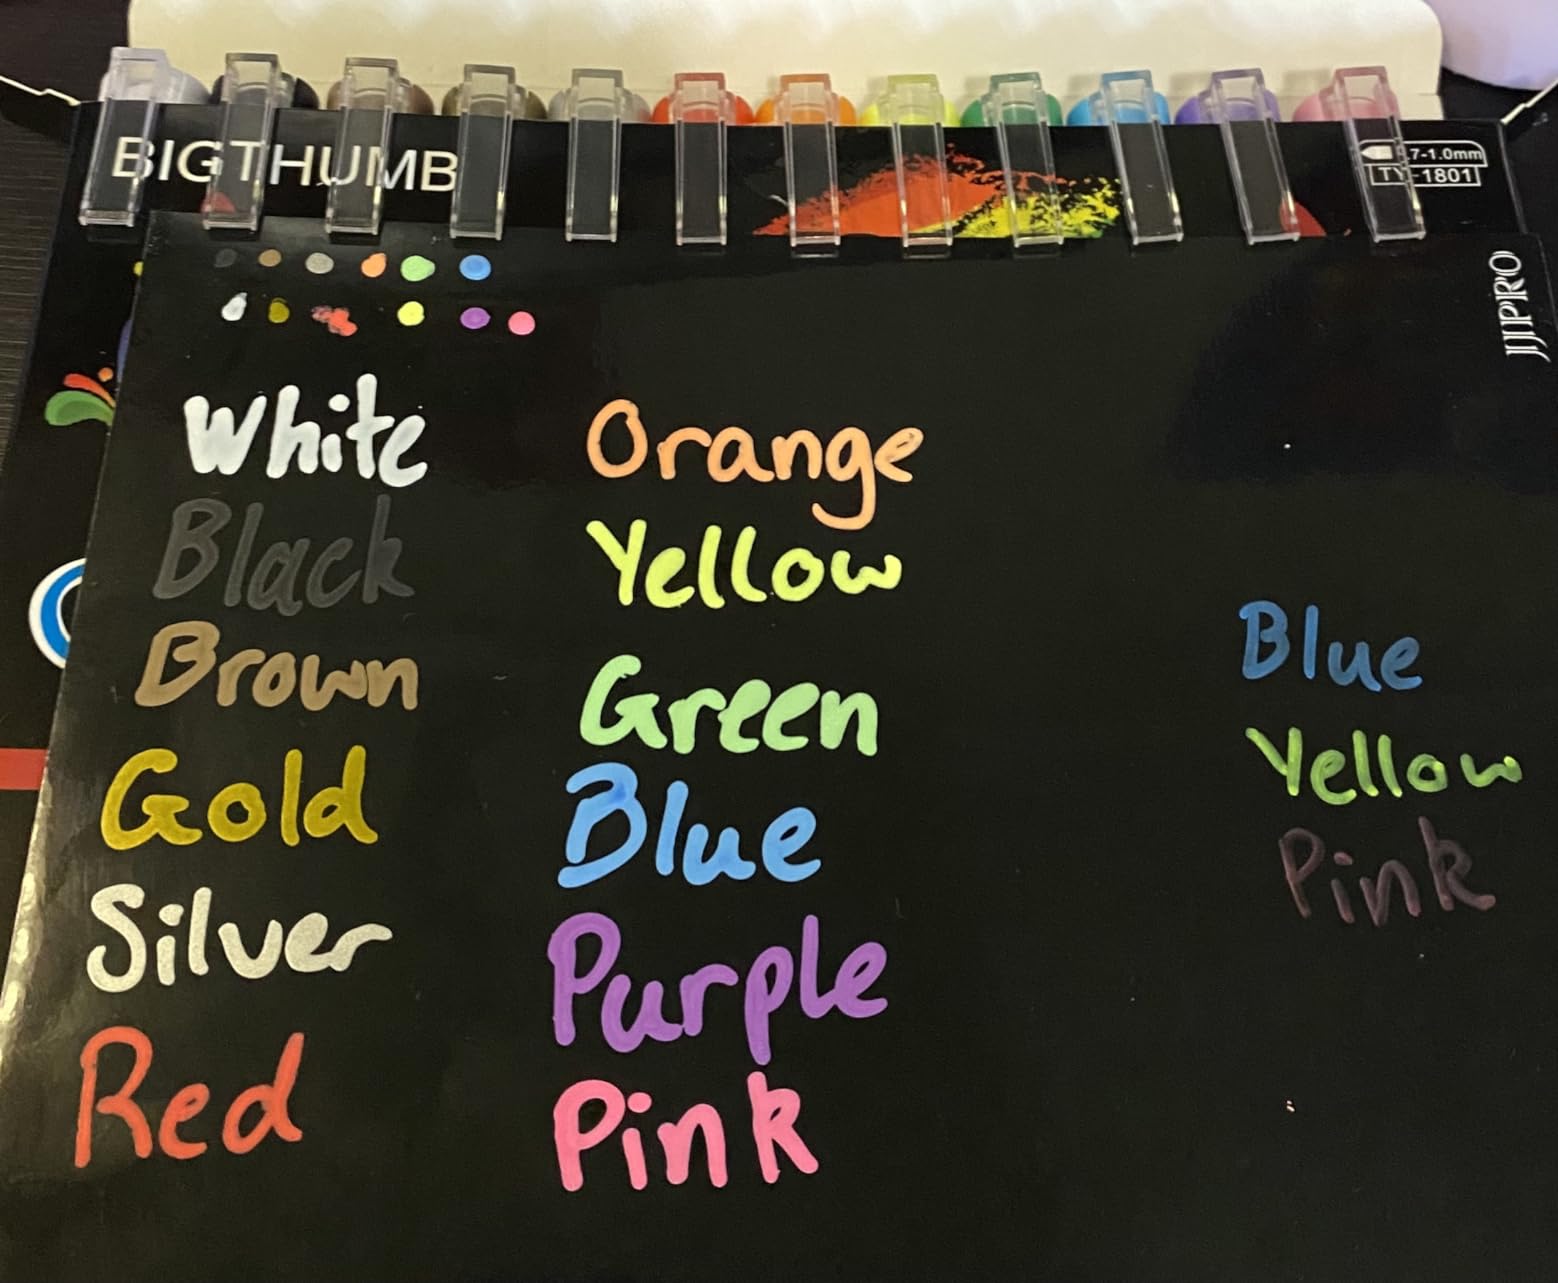 BIGTHUMB
7-1.0mm
TY-1801
JJPRO
White
Black
Brown
Gold
Silver
Red
Orange
Yellow
Green
Blue
Purple
Pink
Blue
Yellow
Pink